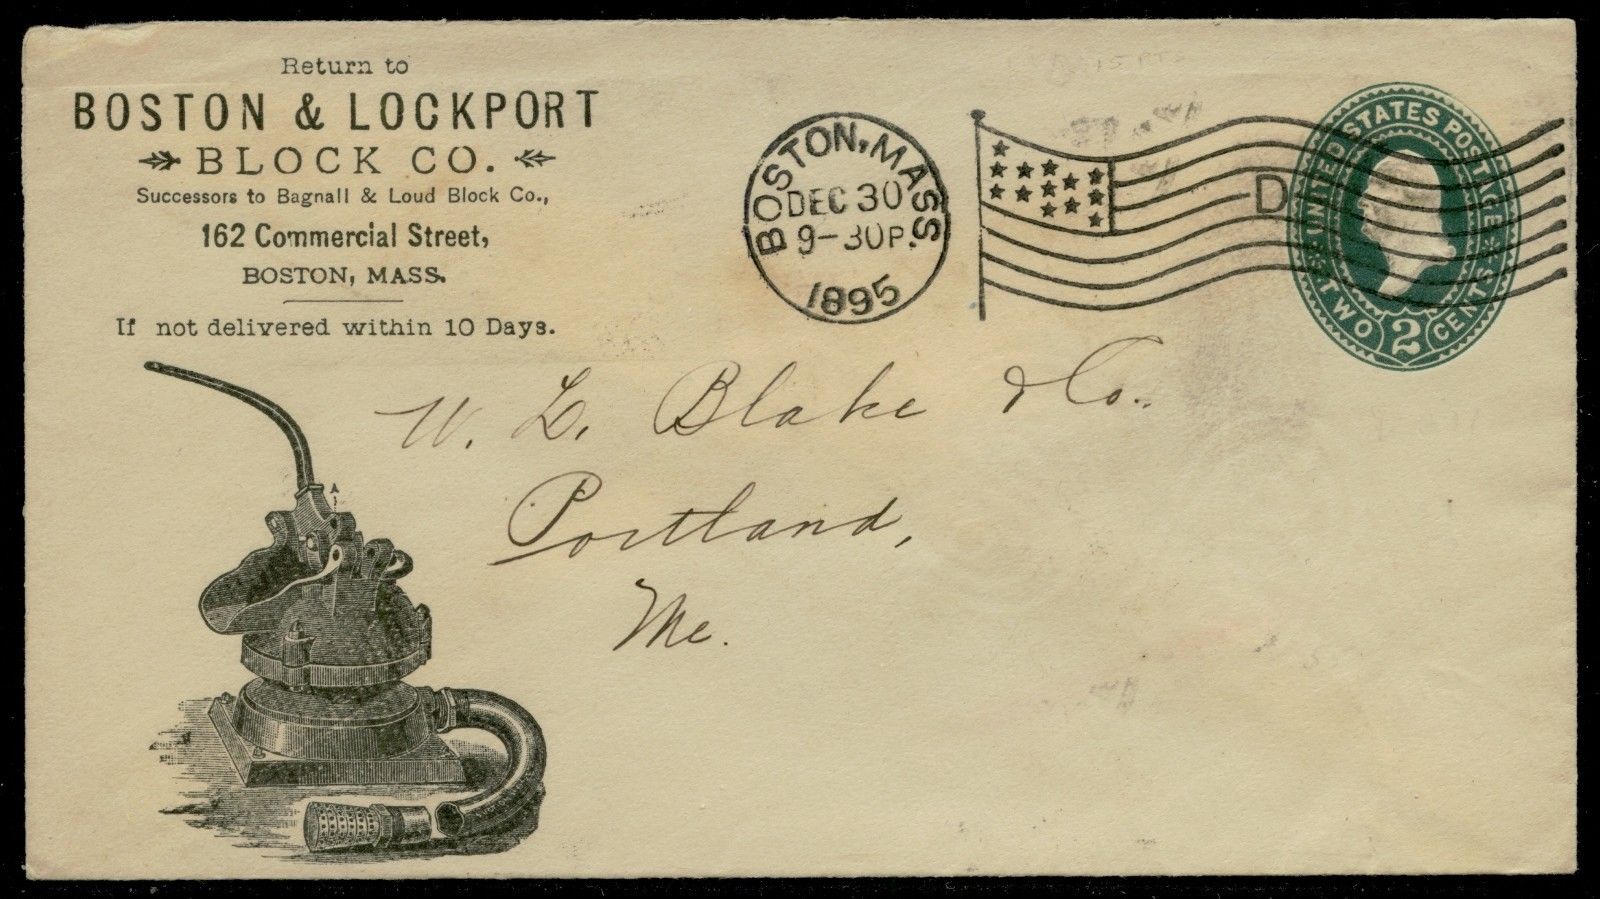 Return to
BOSTON & LOCKPORT
BLOCK CO.
Successors to Bagnall & Loud Block Co.,
162 Commercial Street,
BOSTON, MASS.
If not delivered within 10 Days.
BOSTON, MASS
DEC 30
9-30P.
1895
D
UNITED STATES POSTAGE
TWO 2 CENTS
W. L. Blake & Co.
Portland,
Me.
A